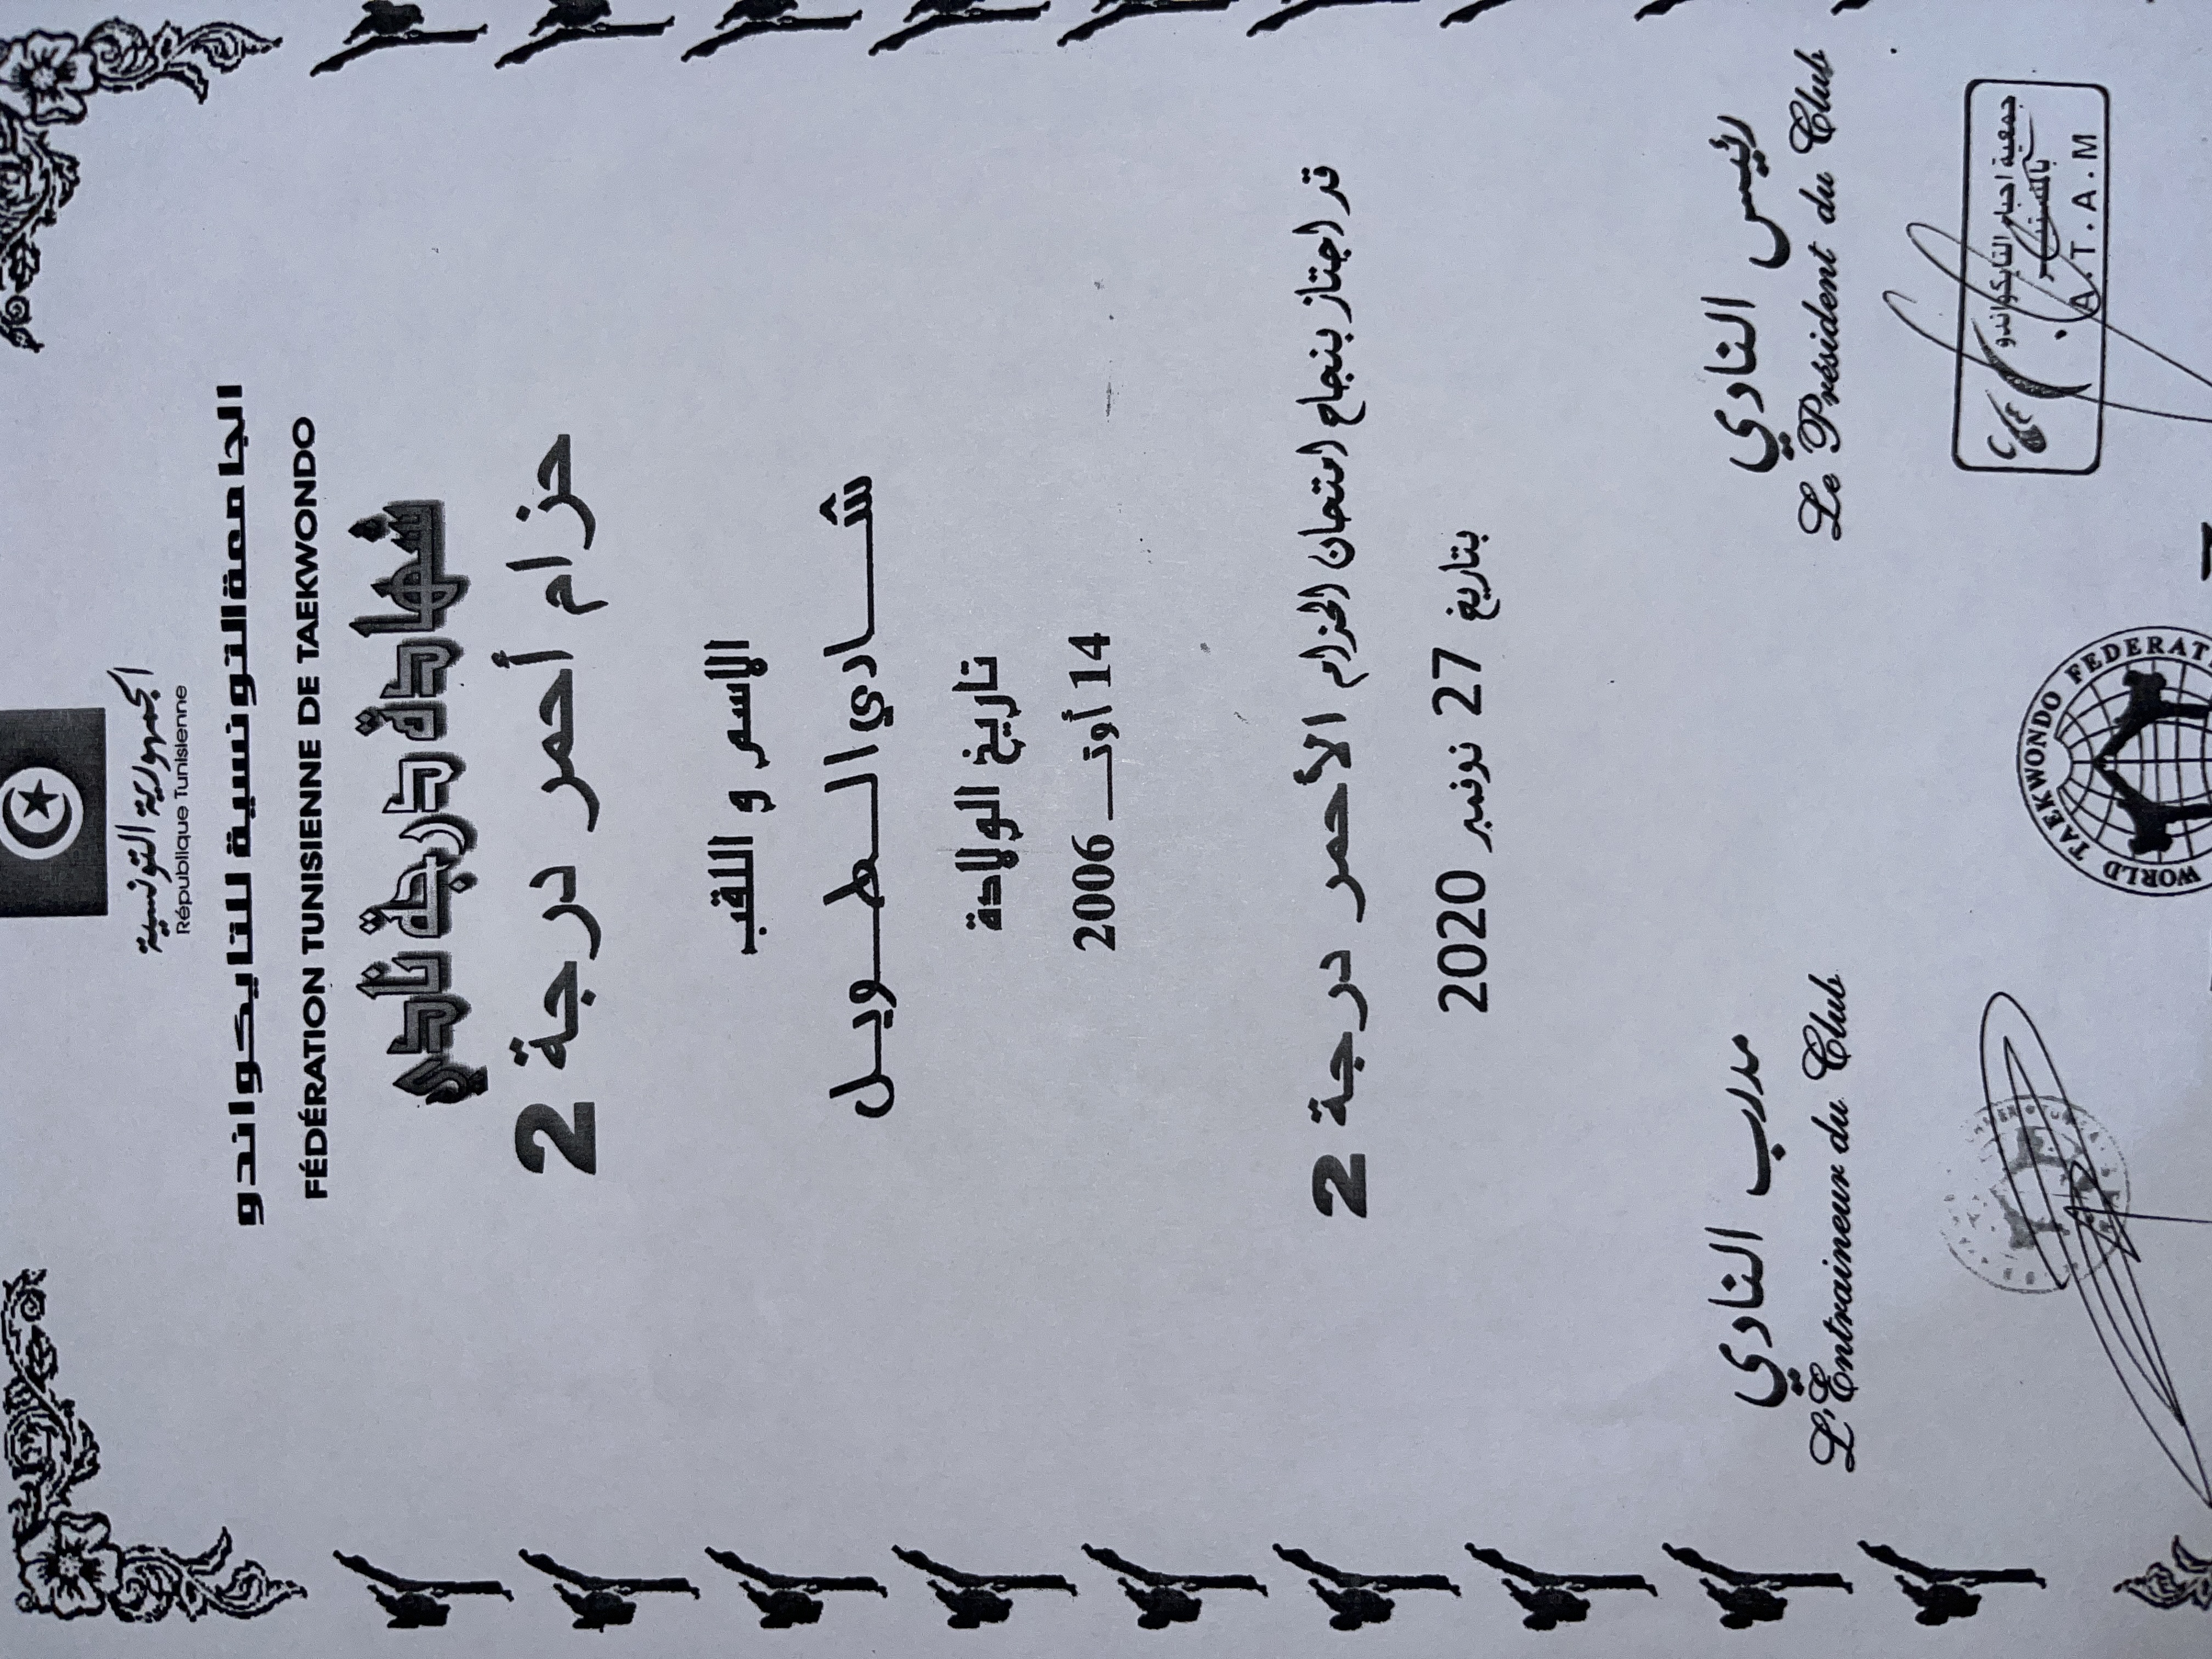 الجمهورية التونسية
République Tunisienne
الجامعة التونسية للتايكواندو
FÉDÉRATION TUNISIENNE DE TAEKWONDO
شهادة درجة نادي
حزام أحمر درجة 2
الاسم و اللقب
شـــادي الـطـويـل
تاريخ الولادة
14 أوتـــ 2006
قد اجتاز بنجاح امتحان الحزام الأحمر درجة 2
بتاريخ 27 نوفمبر 2020
رئيس النادي
Le Président du Club
مدرب النادي
L'Entraineur du Club
جمعية احباء التايكواندو
بالمنستير
A.T.A.M
WORLD TAEKWONDO FEDERAT